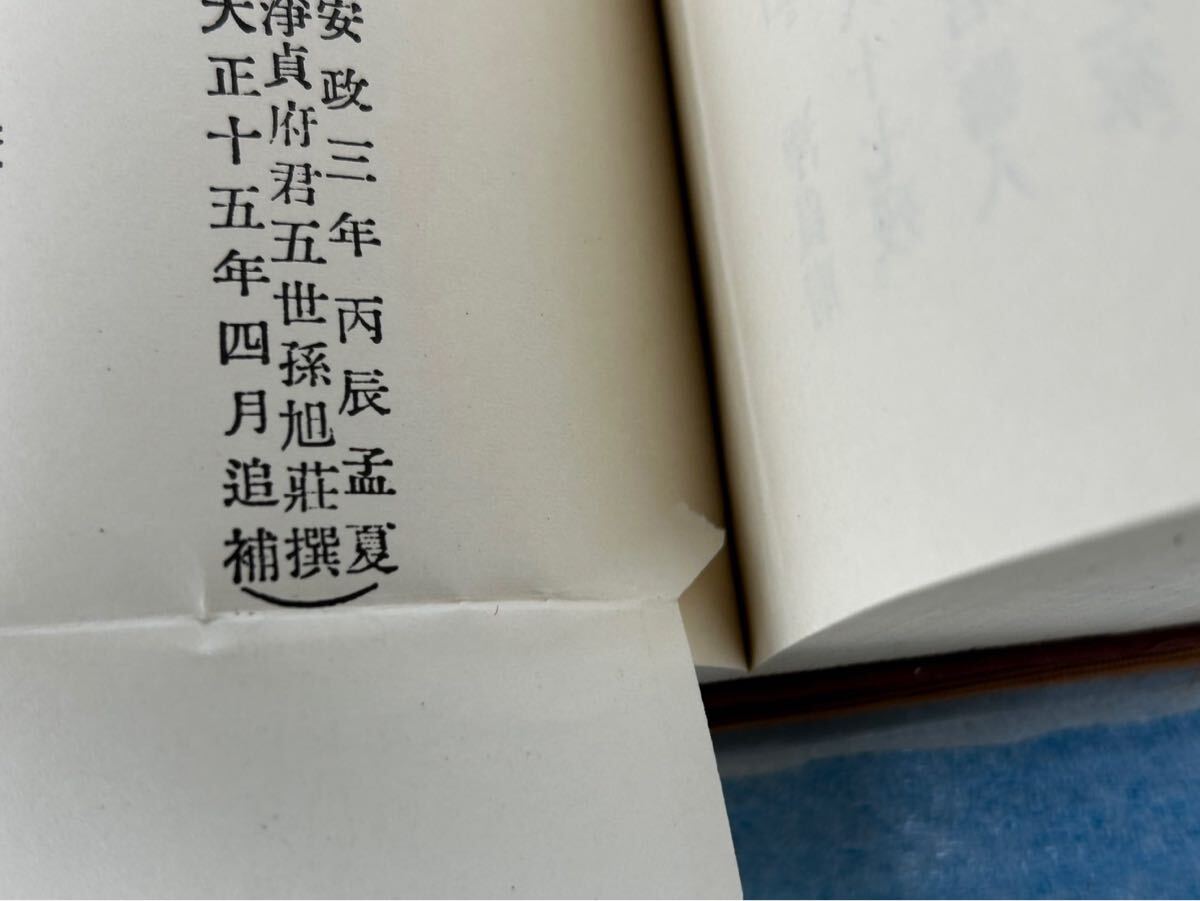 安政三年丙辰孟夏
淨貞府君五世孫旭莊撰
大正十五年四月追補